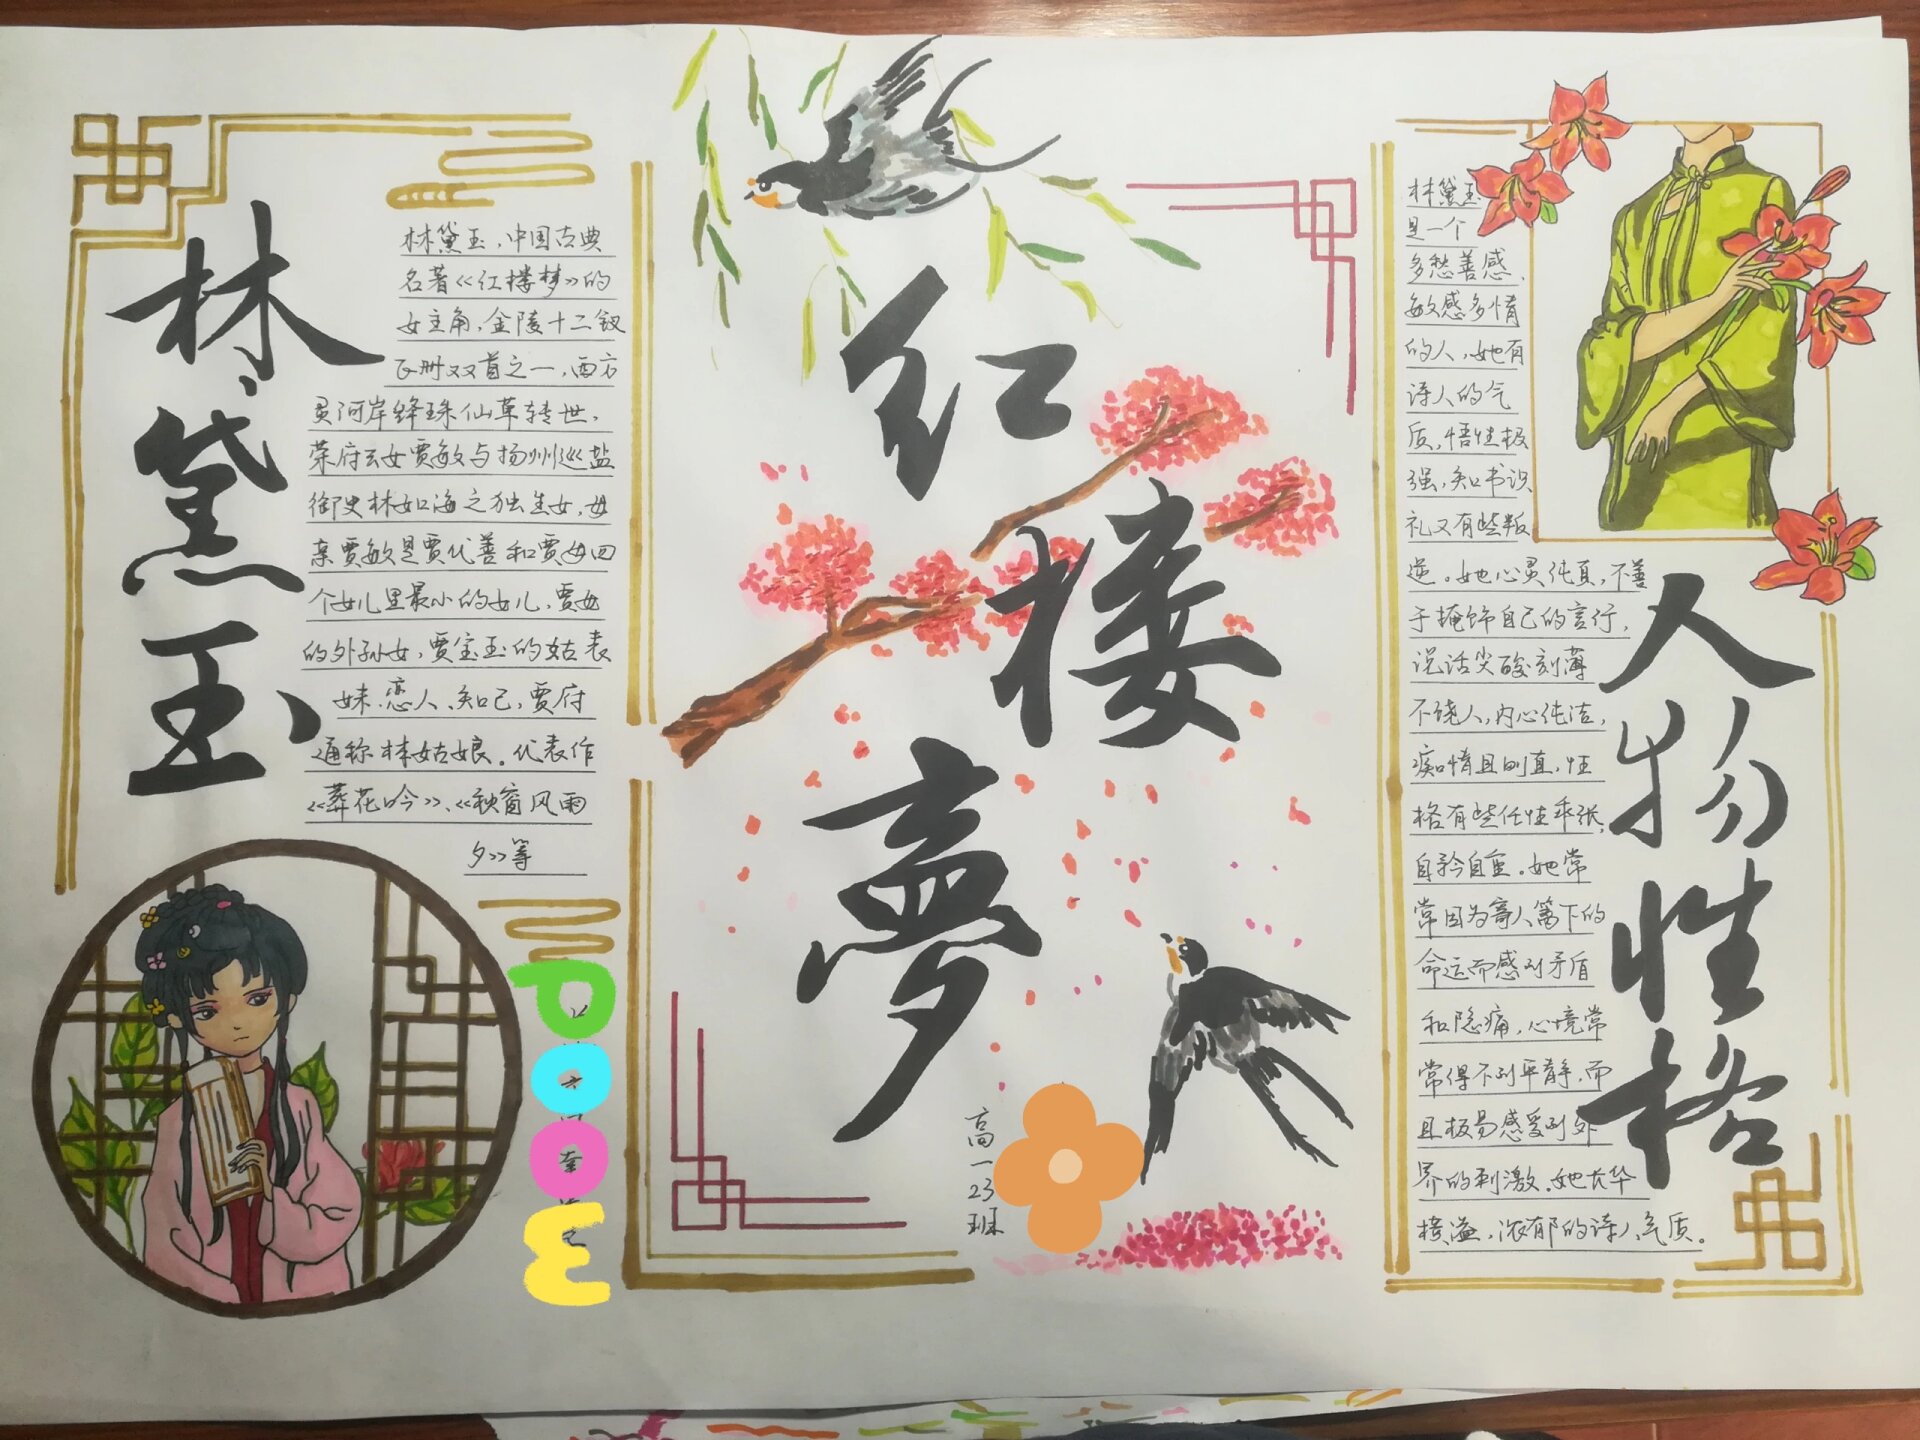 林黛玉
林黛玉，中国古典
名著《红楼梦》的
女主角，金陵十二钗
正册双首之一，西方
灵河岸绛珠仙草转世，
荣府幺女贾敏与扬州巡盐
御史林如海之独生女，母
亲贾敏是贾代善和贾母四
个女儿里最小的女儿，贾母
的外孙女，贾宝玉的姑表
妹、恋人、知己，贾府
通称林姑娘。代表作
《葬花吟》、《秋窗风雨
夕》等
红楼梦
高一23班
林黛玉
是一个
多愁善感、
敏感多情
的人，她有
诗人的气
质，悟性极
强，知书识
礼又有些叛
逆。她心灵纯真，不善
于掩饰自己的言行，
说话尖酸刻薄
不饶人，内心纯洁，
痴情且刚直，性
格有些任性乖张，
自矜自重。她常
常因为寄人篱下的
命运而感到矛盾
和隐痛，心境常
常得不到平静，而
且极易感受到外
界的刺激。她才华
横溢，浓郁的诗人气质。
人物性格